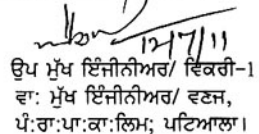 12/7/11
ਉਪ ਮੁੱਖ ਇੰਜੀਨੀਅਰ/ ਵਿਕਰੀ-1
ਵਾ: ਮੁੱਖ ਇੰਜੀਨੀਅਰ/ ਵਣਜ,
ਪੰ:ਰਾ:ਪਾ:ਕਾ:ਲਿਮ; ਪਟਿਆਲਾ।